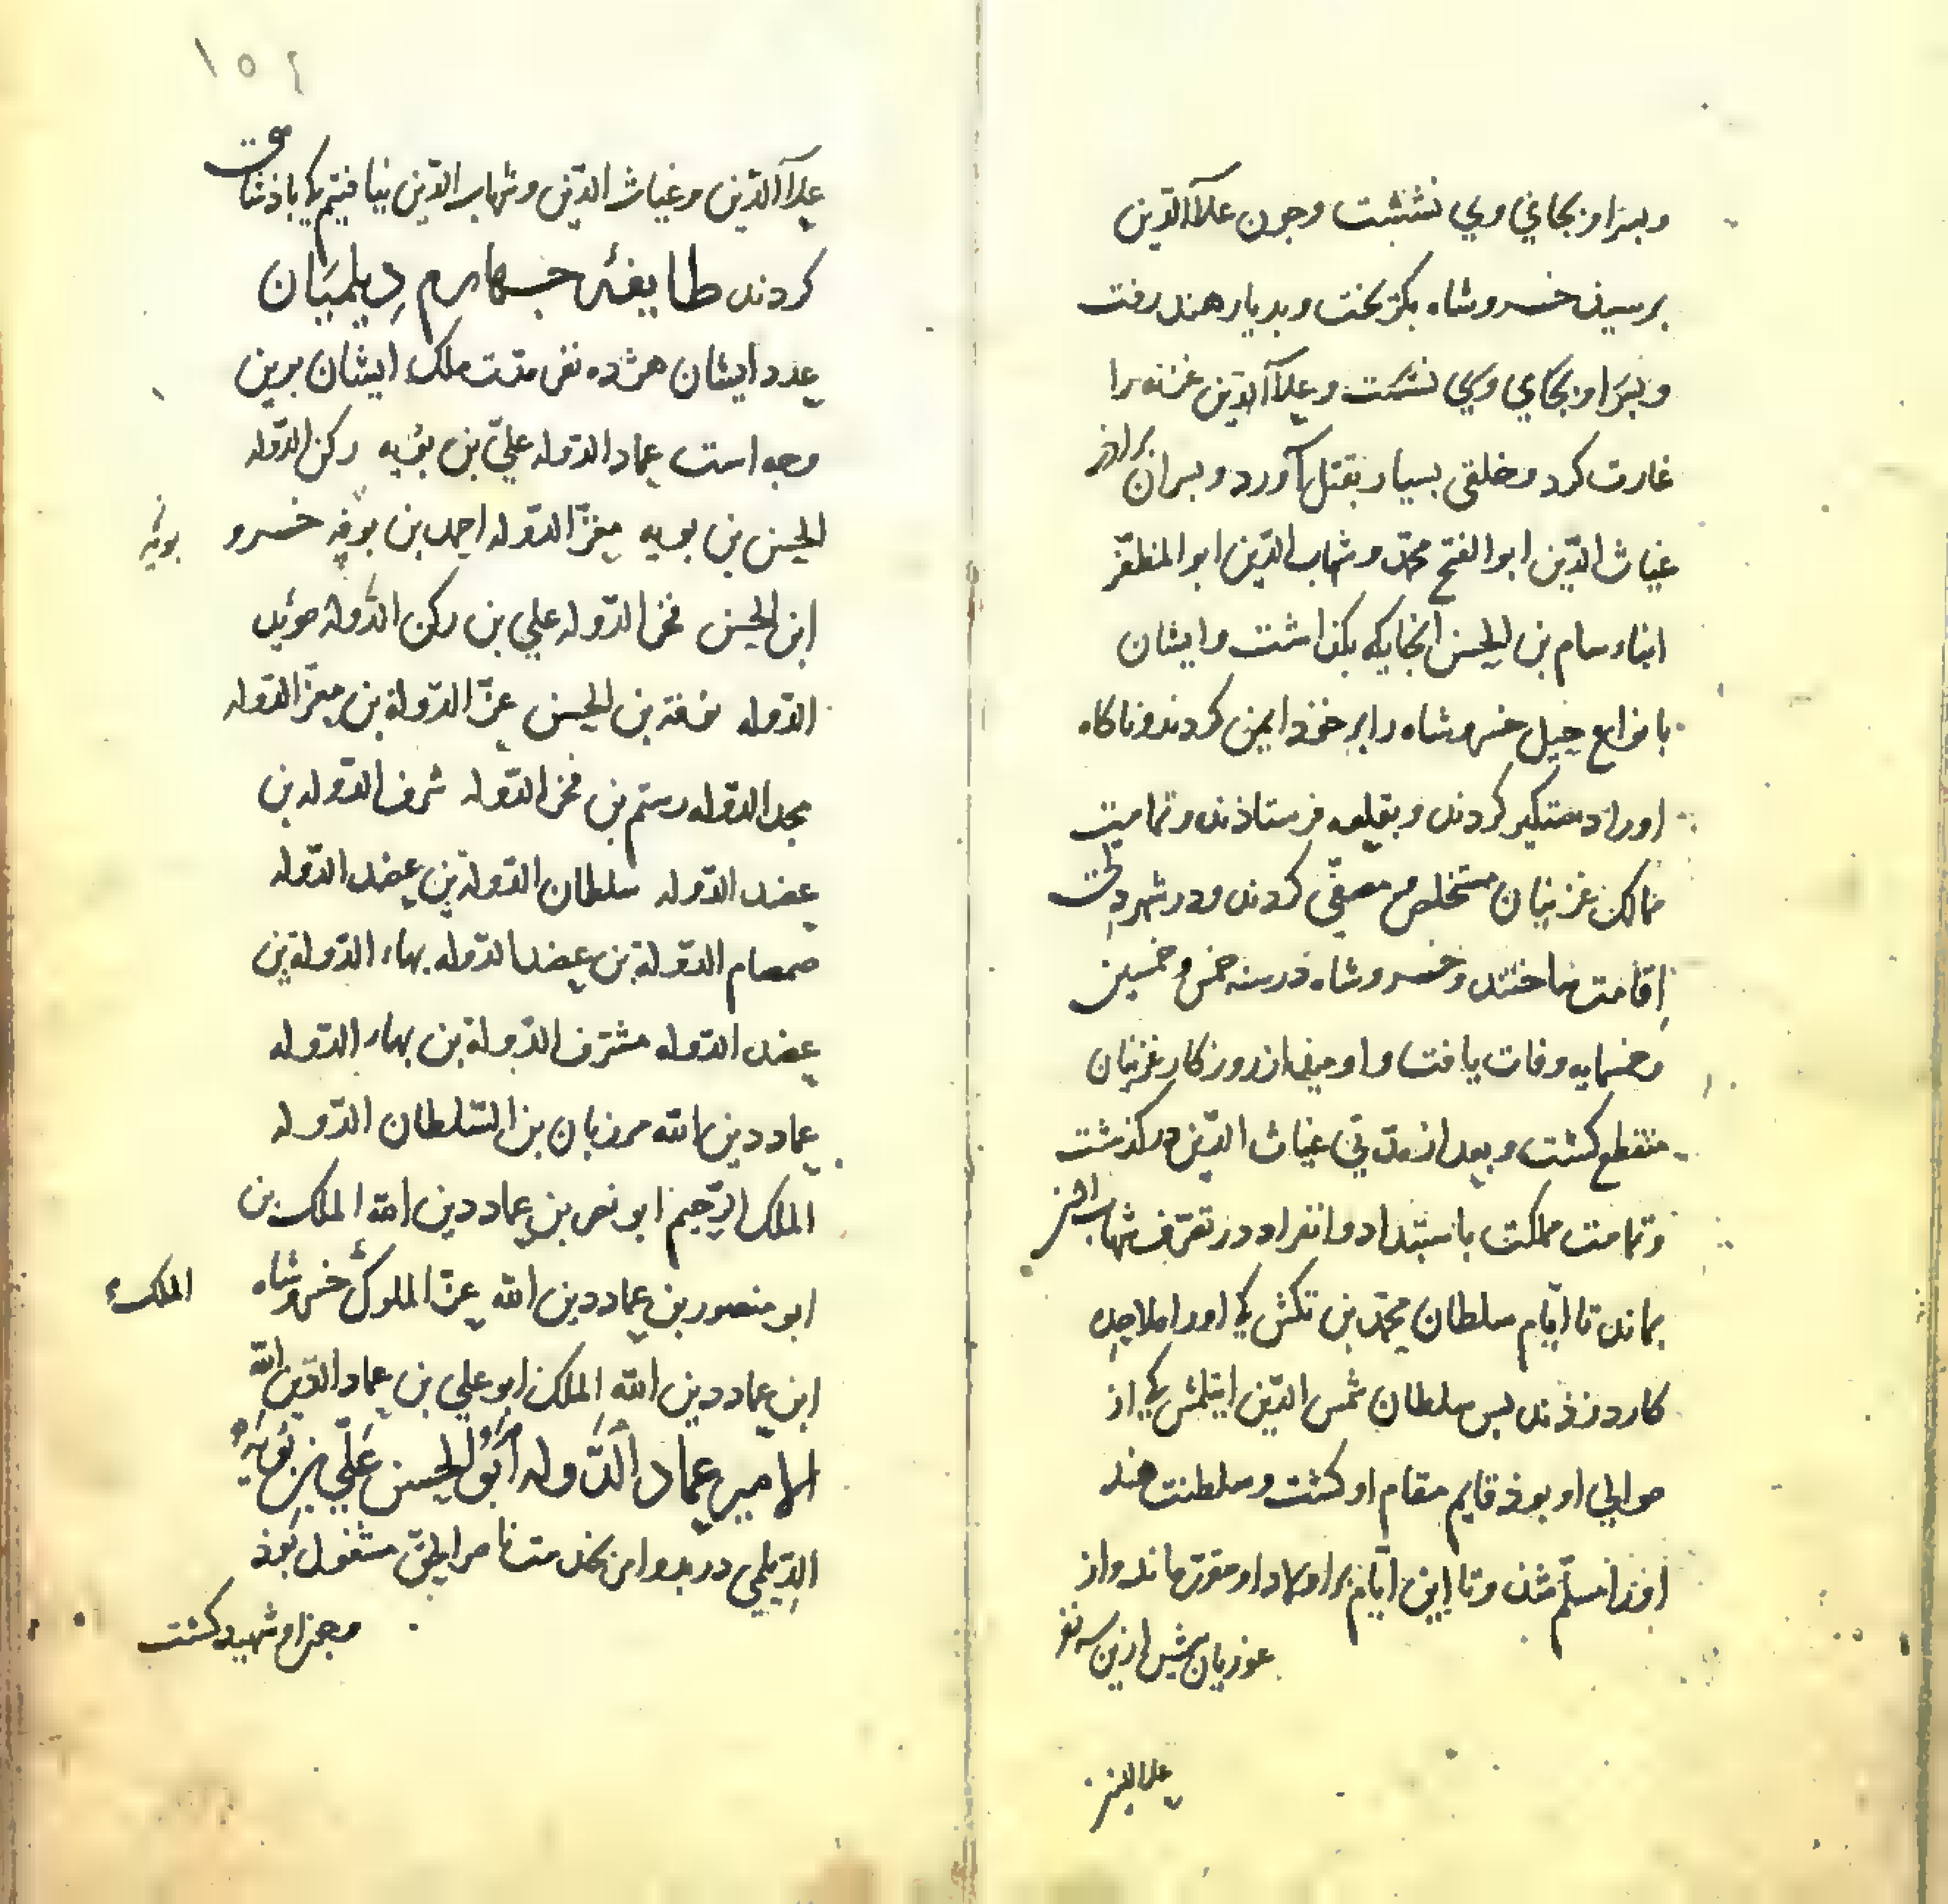 وپسر او بجای وی نشست وچون علاآالدّین
برسید خسروشاه بکریخت وبدیار هند رفت
وپسر او بجای وی نشست وعلاآالدّین غزنه را
غارت کرد وخلقی بسیار بقتل آورد وپسران برادر
غیاث الدّین ابو الفتح محمّد وشهاب الدّین ابو المظفّر
ابناء سام بن الحسن آنجایکه بکذاشت وایشان
بانواع حیل خسروشاه را بر خوذ ایمن کردند وناکاه
اورا دستکیر کردند وبقلعه فرستاذند وتمامیت
ممالک غزنیان مستخلص ومصفّی کردند ودر شهر دلی
اقامت ساختند وخسروشاه در سنه خمس وخمسین
وخمسایه وفات یافت واومید از روزکار غزنیان
منقطع کشت وبعد از مدّتی غیاث الدّین در کذشت
وتمامت مملکت باستبداد وانفراد در تصرّف شهاب الدّین
بماند تا ایّام سلطان محمّد بن تکش کی اورا ملاحده
کارد زذند بس سلطان شمس الدّین ایتلمش کی از
موالی او بوذ قایم مقام او کشت وسلطنت هند
اورا مسلّم شذ وتا این ایّام بر اولاد او مقرّر ماند واز
غوریان بیش ازین سه نفر
علا الدین
١٥٤
علاآالدّین وغیاث الدّین وشهاب الدّین نیافتیم کی باذشاهی
کردند طایفهٔ چهارم دیلمیان
عدد ایشان هژده نفر مدّت ملک ایشان برین
وجه است عماد الدّوله علیّ بن بویه رکن الدّوله
الحسن بن بویه معزّ الدّوله احمد بن بویه خسرو
بویه
ابن الحسن فخر الدّوله علی بن رکن الدّوله مؤید
الدّوله بن الحسن عزّ الدّولة بن معزّ الدّوله
مجد الدّوله رستم بن فخر الدّوله شرف الدّوله بن
عضد الدّوله سلطان الدّولة بن عضد الدّوله
صمصام الدّولة بن عضد الدّوله بهاء الدّولة بن
عضد الدّوله مشرّف الدّولة بن بهاء الدّوله
عماد دین الله مرزبان بن السّلطان الدّوله
الملک الرّحیم ابو نصر بن عماد دین الله الملک بن
ابو منصور بن عماد دین الله عزّ الملوک خسروشاه
الملک
ابن عماد دین الله الملک ابو علی بن عماد الدّین الله
الامیر عماد الدّوله ابو الحسن علیّ بن بویه
الدّیلمی در بدو امر بخدمت ناصر الحقّ مشغول بوذ
وچون او شهید کشت